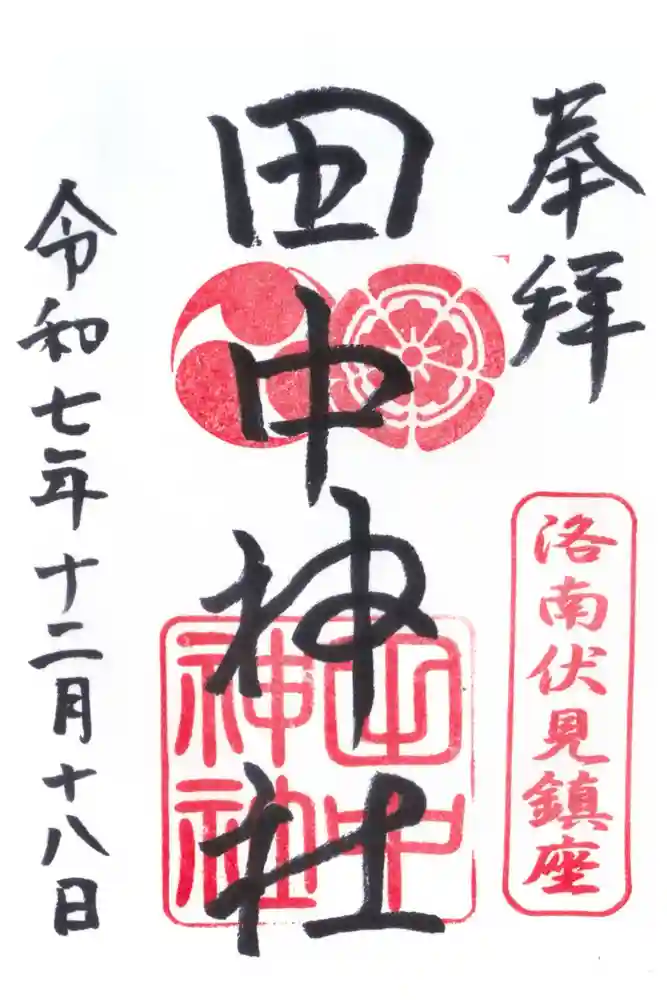 奉拝
洛南伏見鎮座
田中神社
田中神社
令和七年十二月十八日